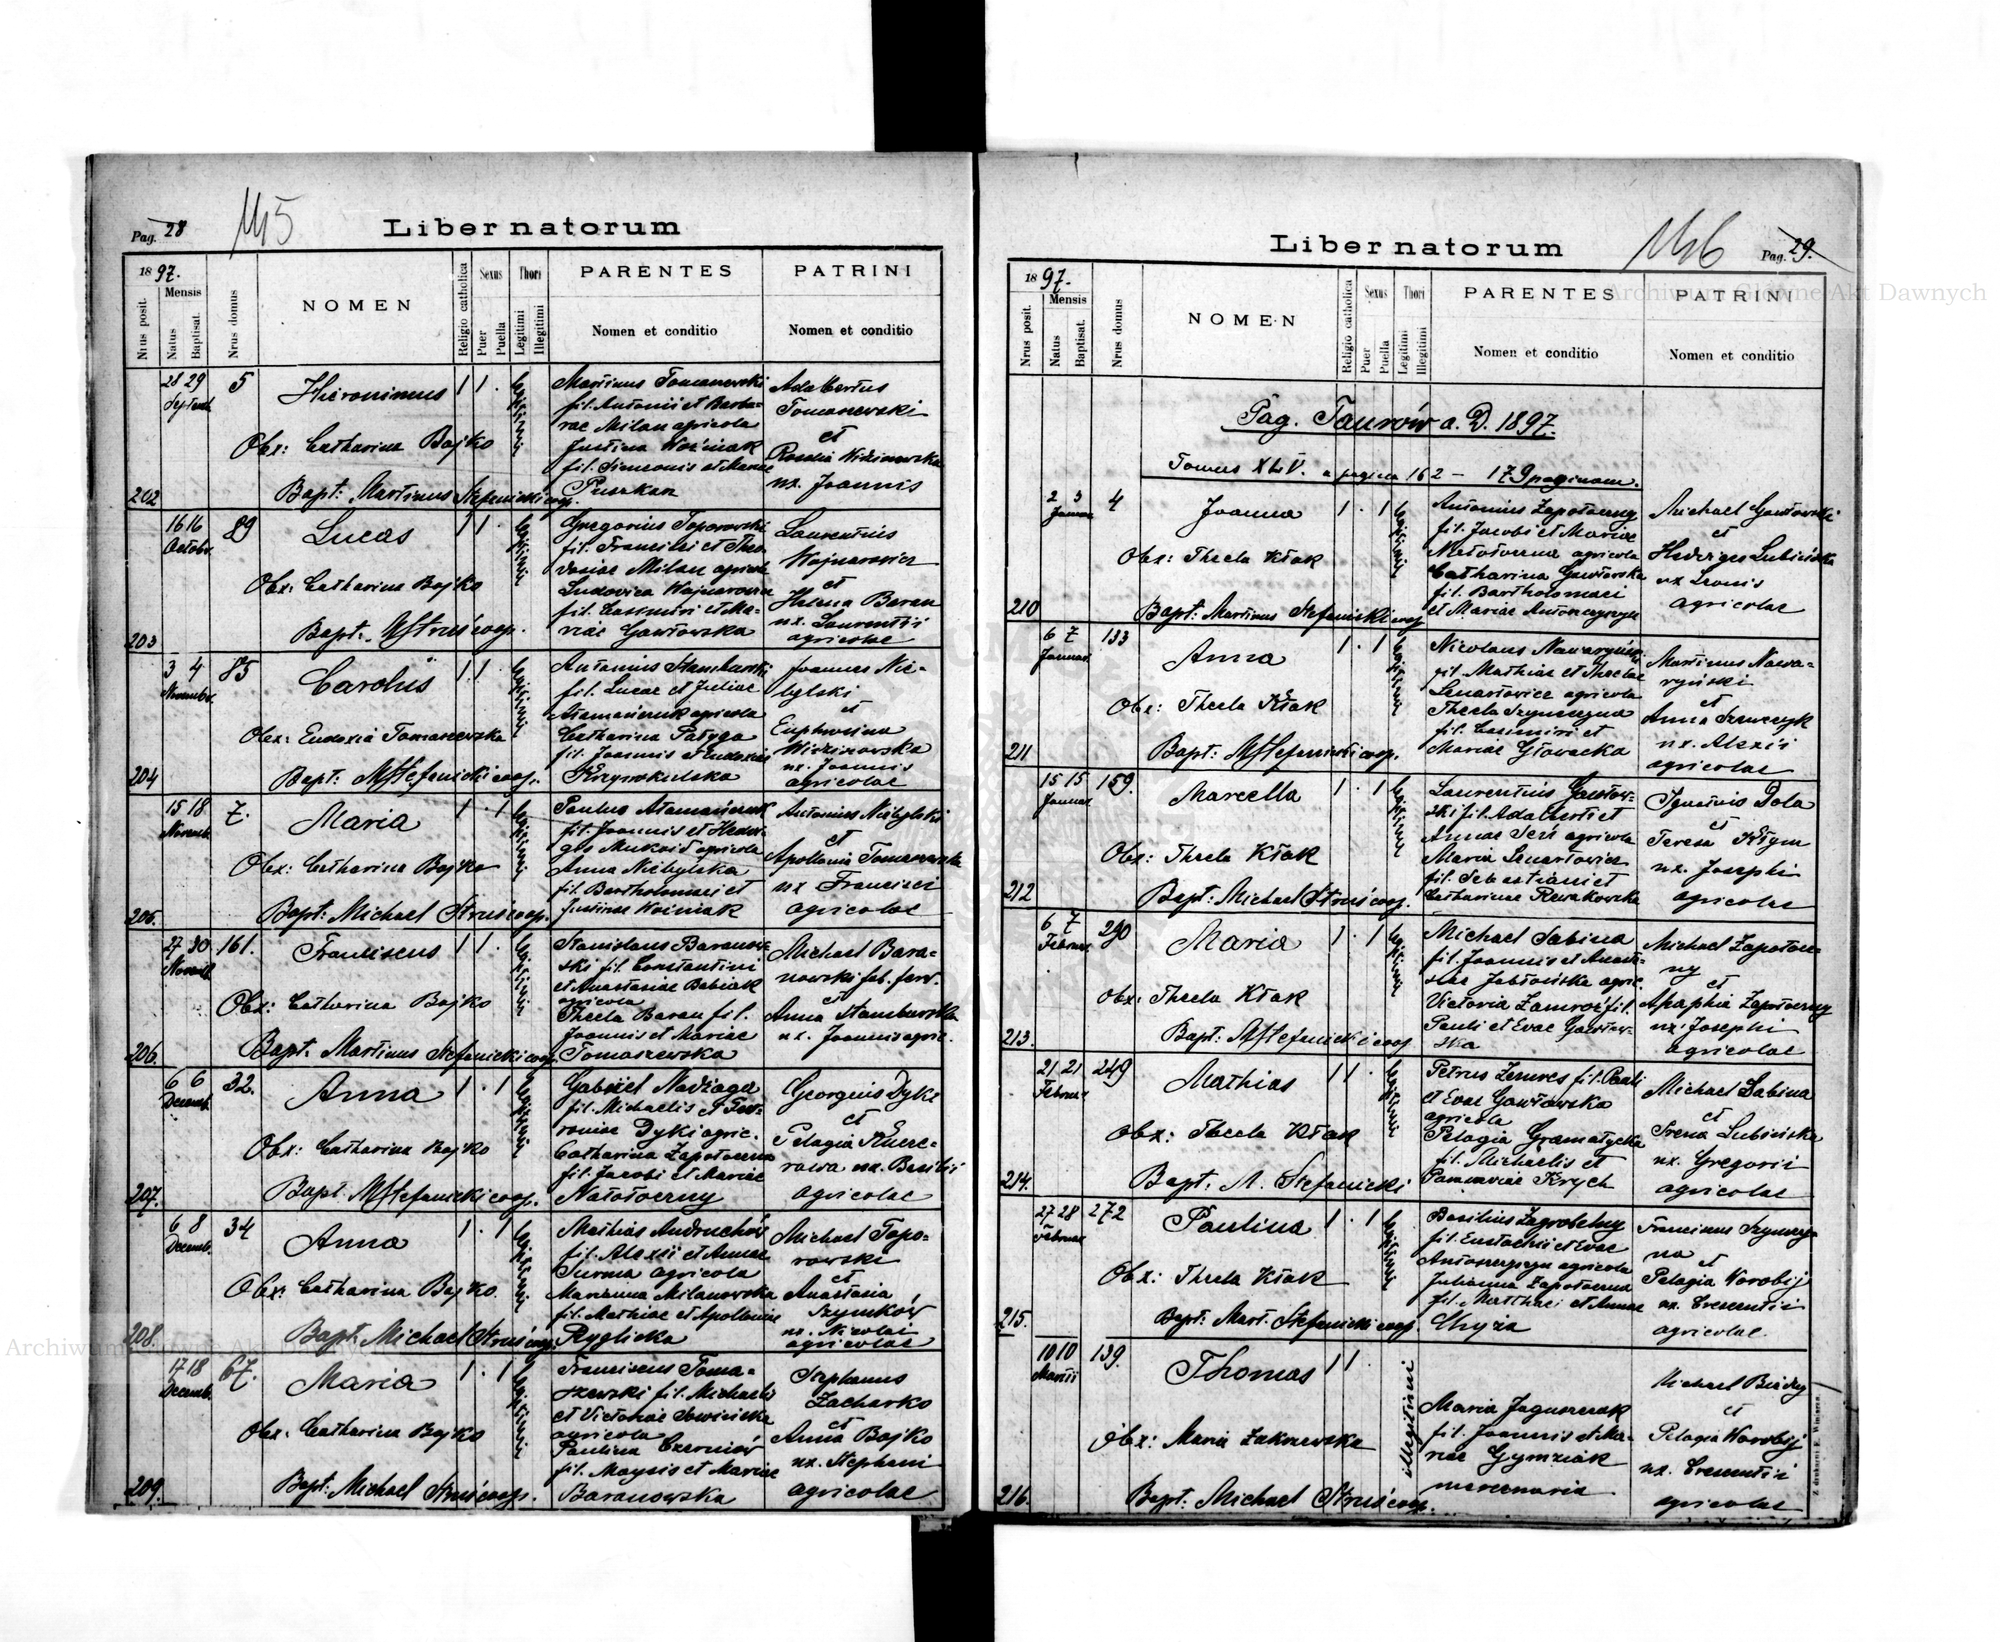 Pag. 28
145
Liber natorum
1897.
Nrus posit.
Mensis
Natus
Baptisat.
Nrus domus
NOMEN
Religio catholica
Sexus
Puer
Puella
Thori
Legitimi
Illegitimi
PARENTES
Nomen et conditio
PATRINI
Nomen et conditio
202
28 29
Septemb.
5
Hieronimus
1 1 .
Legitimi
Obx: Catharina Bojko
Bapt: Martinus Stefanicki coop.
Martinus Tomaszewski
fil. Antonii et Barba-
rae Milan agricola
Justina Woźniak
fil. Simeonis et Mariae
Puszkar
Adalbertus
Tomaszewski
et
Rosalia
ux. Joannis
203
16 16
Octobr.
89
Lucas
1 1 .
Legitimi
Obx: Catharina Bojko
Bapt: M Struś coop.
Gregorius Toporowski
fil. Francisci et Theo
dosiae Milan agricola
Ludovica Wojnarowicz
fil. Casimiri et Ma-
riae Gawłowska
Laurentius
Wojnarowicz
et
Helena Baran
ux. Laurentii
agricolae
204
3 4
Novembr.
85
Carolus
1 1 .
Legitimi
Obx: Eudoxia Tomaszewska
Bapt: M Stefanicki coop.
Antonius Stamburski
fil. Lucae et Juliae
Atamańczuk agricola
Catharina Pałyga
fil. Joannis et Eudoxiae
Krzywokulska
Joannes Nie-
bylski
et
Euphrosina
ux. Joannis
agricolae
206.
15 18
Novemb.
7.
Maria
1 . 1
Legitimi
Obx: Catharina Bojko
Bapt: Michael Struś coop.
Paulus Atamańczuk
fil. Joannis et Hedvi-
gis agricola
Anna Niebylska
fil. Bartholomaei et
Justinae Woźniak
Antonius Niebylski
et
Apollonia Tomaszewska
ux Francisci
agricolae
206.
27 30
Novemb.
161.
Franciscus
1 1 .
Legitimi
Obx: Catharina Bojko
Bapt. Martinus Stefanicki coop.
Stanislaus Baranow-
ski fil. Constantini
et Anastasiae Babiak
agricola
Thecla Baran fil.
Joannis et Mariae
Tomaszewska
Michael Bara-
nowski fab. ferr.
et
Anna Stamburska
ux. Joannis agric.
207.
6 6
Decemb.
32.
Anna
1 . 1
Legitimi
Obx: Catharina Bojko
Bapt. M Stefanicki coop.
Gabriel Nadżaga
fil. Michaelis et Fev-
roniae Dyki agric.
Catharina Zapotoczna
fil. Jacobi et Mariae
Natotoczny
Georgius Dyki
et
Pelagia
ux. Basilii
agricolae
208.
6 8
Decemb.
34
Anna
1 . 1
Legitimi
Obx: Catharina Bojko
Bapt: Michael Struś coop.
Mathias Andruchów
fil. Alexii et Annae
Surma agricola
Marianna Milanowska
fil. Mathiae et Apolloniae
Ryglicka
Michael Topo-
rowski
et
Anastasia
Szymków
ux. Nicolai
agricolae
209.
17 18
Decemb.
67.
Maria
1 . 1
Legitimi
Obx: Catharina Bojko
Bapt: Michael Struś coop.
Franciscus Toma-
szewski fil. Michaelis
et Victoriae Sowińska
agricola
Paulina Czerniów
fil. Moysis et Mariae
Baranowska
Stephanus
Zacharko
et
Anna Bojko
ux. Stephani
agricolae
Liber natorum
146
Pag. 29.
1897.
Nrus posit.
Mensis
Natus
Baptisat.
Nrus domus
NOMEN
Religio catholica
Sexus
Puer
Puella
Thori
Legitimi
Illegitimi
PARENTES
Nomen et conditio
PATRINI
Nomen et conditio
Pag. Taurów a. D. 1897.
Tomus XLV. a pagina 162 - 179 paginam.
210
2 3
Januar.
4
Joanna
1 . 1
Legitimi
Obx: Thecla Kłak
Bapt: Martinus Stefanicki coop
Antonius Zapotoczny
fil. Jacobi et Mariae
Natotoczna agricola
Catharina Gawłowska
fil. Bartholomaei
et Mariae Antoszczyszyn
Michael Gawłowski
et
Hedviges Lubińska
ux Leonis
agricolae
211
6 7
Januar.
133
Anna
1 . 1
Legitimi
Obx: Thecla Kłak
Bapt: M Stefanicki coop.
Nicolaus Nawaryński
fil. Mathiae et Theclae
Lenartowicz agricola
Thecla Szymczyna
fil. Casimiri et
Mariae Głowacka
Martinus Nawa-
ryński
et
Anna Szewczyk
ux. Alexii
agricolae
212
15 15
Januar.
159.
Marcella
1 . 1
Legitimi
Obx: Thecla Kłak
Bapt: Michael Struś coop.
Laurentius Gawłow-
ski fil. Adalberti et
Annae Serś agricola
Maria Lenartowicz
fil. Sebastiani et
Catharinae Rewakowska
Ignatius Dola
et
Teresa Kłym
ux. Josephi
agricolae
213.
6 7
Februar.
290
Maria
1 . 1
Legitimi
Obx: Thecla Kłak
Bapt: M Stefanicki coop
Michael Sabina
fil. Joannis et Anasta-
siae Jabłońska agric.
Victoria Zamroź fil.
Pauli et Evae Gawłow-
ska
Michael Zapotocz-
ny
et
Agaphia Zapotoczny
ux. Josephi
agricolae
214.
21 21
Februar.
249
Mathias
1 1 .
Legitimi
Obx: Thecla Kłak
Bapt. M. Stefanicki
Petrus fil. Pauli
et Evae Gawłowska
agricola
Pelagia Gramatycka
fil. Michaelis et
Parasceviae Krych
Michael Sabina
et
Irena Lubińska
ux. Gregorii
agricolae
215.
27 28
Februar.
272
Paulina
1 . 1
Legitimi
Obx: Thecla Kłak
Bapt: Mart. Stefanicki coop.
Basilius Zagrobelny
fil. Eustachii et Evae
Antoszczyszyn agricola
Julianna Zapotoczna
fil. Matthaei et Annae
Chyża
Franciscus Szymczy-
na
et
Pelagia Worobij
ux. Crescentii
agricolae.
216.
10 10
Martii
139.
Thomas
1 1
illegitimi
Obx: Maria Zakrzewska
Bapt: Michael Struś coop.
Maria Jaguszczak
fil. Joannis et Ma-
riae Gymziak
mercenaria
Michael
et
Pelagia Worobij
ux. Crescentii
agricolae
Z drukarni E. Winiarza.
Archiwum Główne Akt Dawnych
Archiwum Główne Akt Dawnych